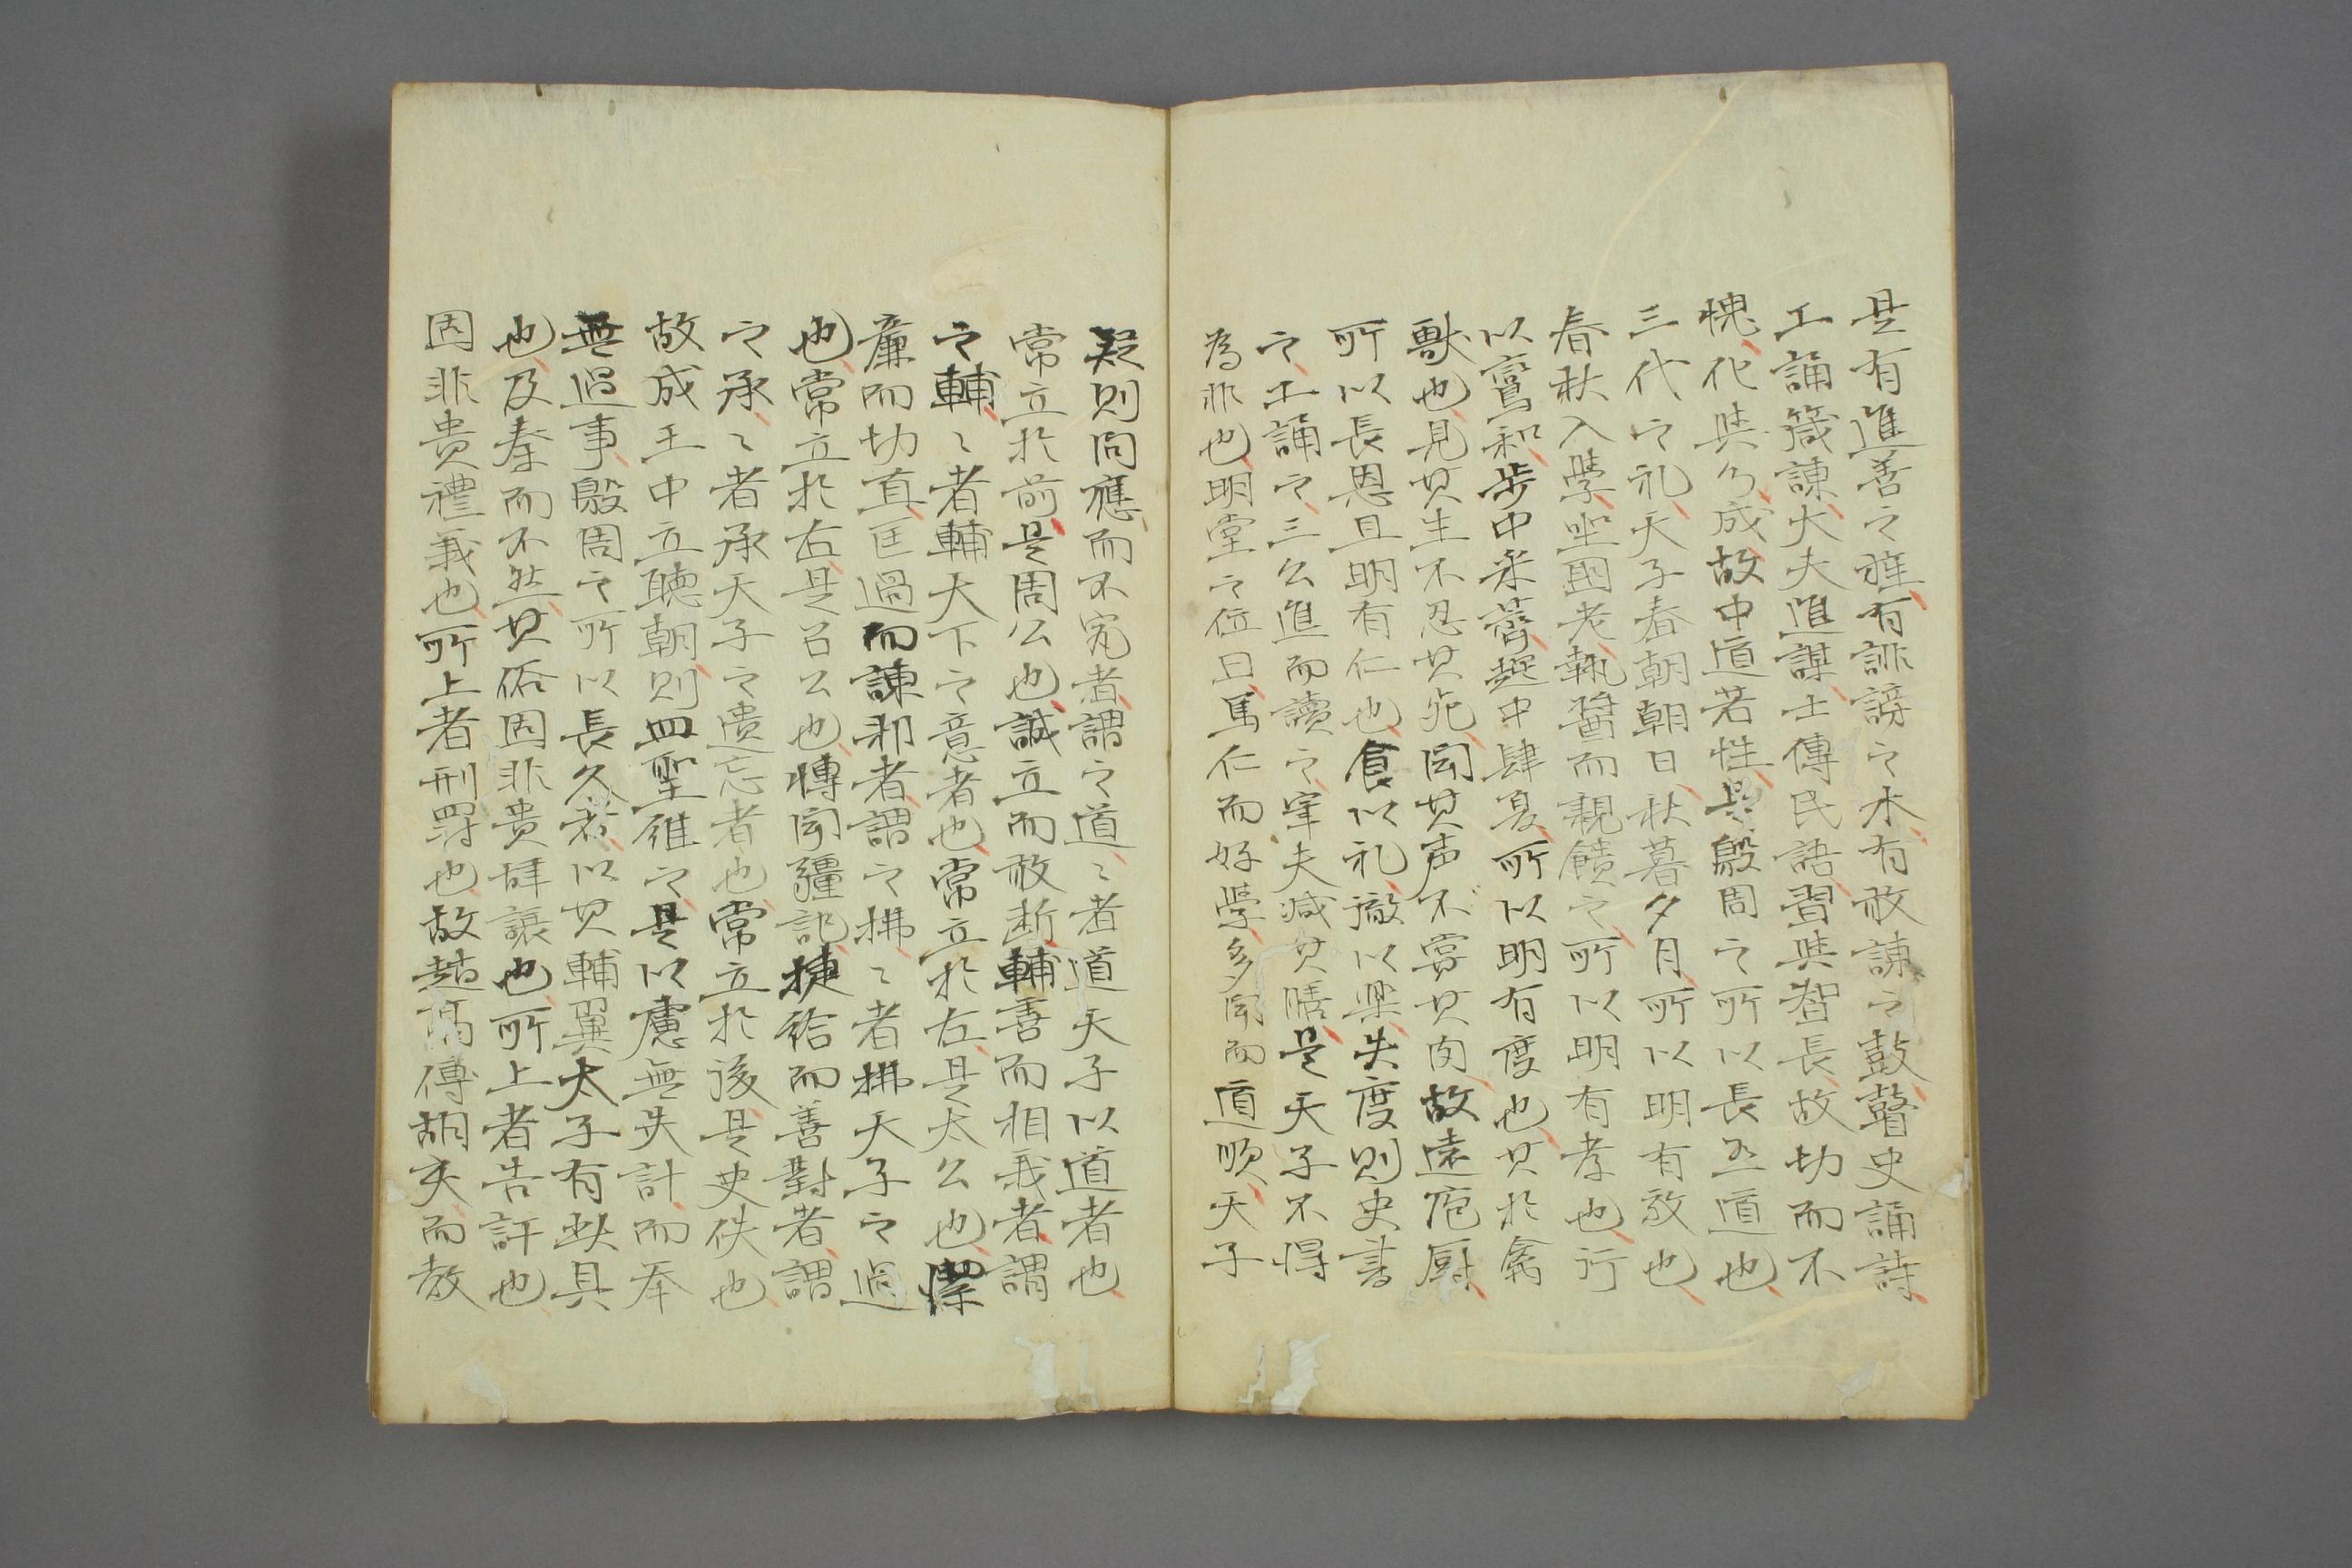 是有進善之旌有誹謗之木有敢諌之鼓瞽史誦詩
工誦箴諌大夫進謀士傳民語習與智長故切而不
愧化與心成故中道若性是殷周之所以長有道也
三代之礼天子春朝朝日秋暮夕月所以明有敬也
春秋入學坐國老執醤而親饋之所以明有孝也行
以鸞和步中采薺趍中肆夏所以明有度也其於禽
獸也見其生不忍其死闻其声不嘗其肉故遠庖厨
所以長恩且明有仁也食以礼徹以樂失度則史書
之工誦之三公進而讀之宰夫減其膳是天子不得
為非也明堂之位曰篤仁而好學多闻而道順天子
疑則问應而不窮者謂之道〻者道天子以道者也
常立於前是周公也誠立而敢断輔善而相義者謂
之輔〻者輔天下之意者也常立於左是太公也潔
廉而切直匡過而諌邪者謂之拂〻者拂天子之過
也常立於右是召公也博闻彊記捷給而善對者謂
之承〻者承天子之遺忘者也常立於後是史佚也
故成王中立聴朝則四聖維之是以慮無失計而舉
無過事殷周之所以長久者以其輔翼太子有此具
也及秦而不然其俗固非貴辞譲也所上者告訐也
固非貴禮義也所上者刑罰也故趙高傅胡亥而教